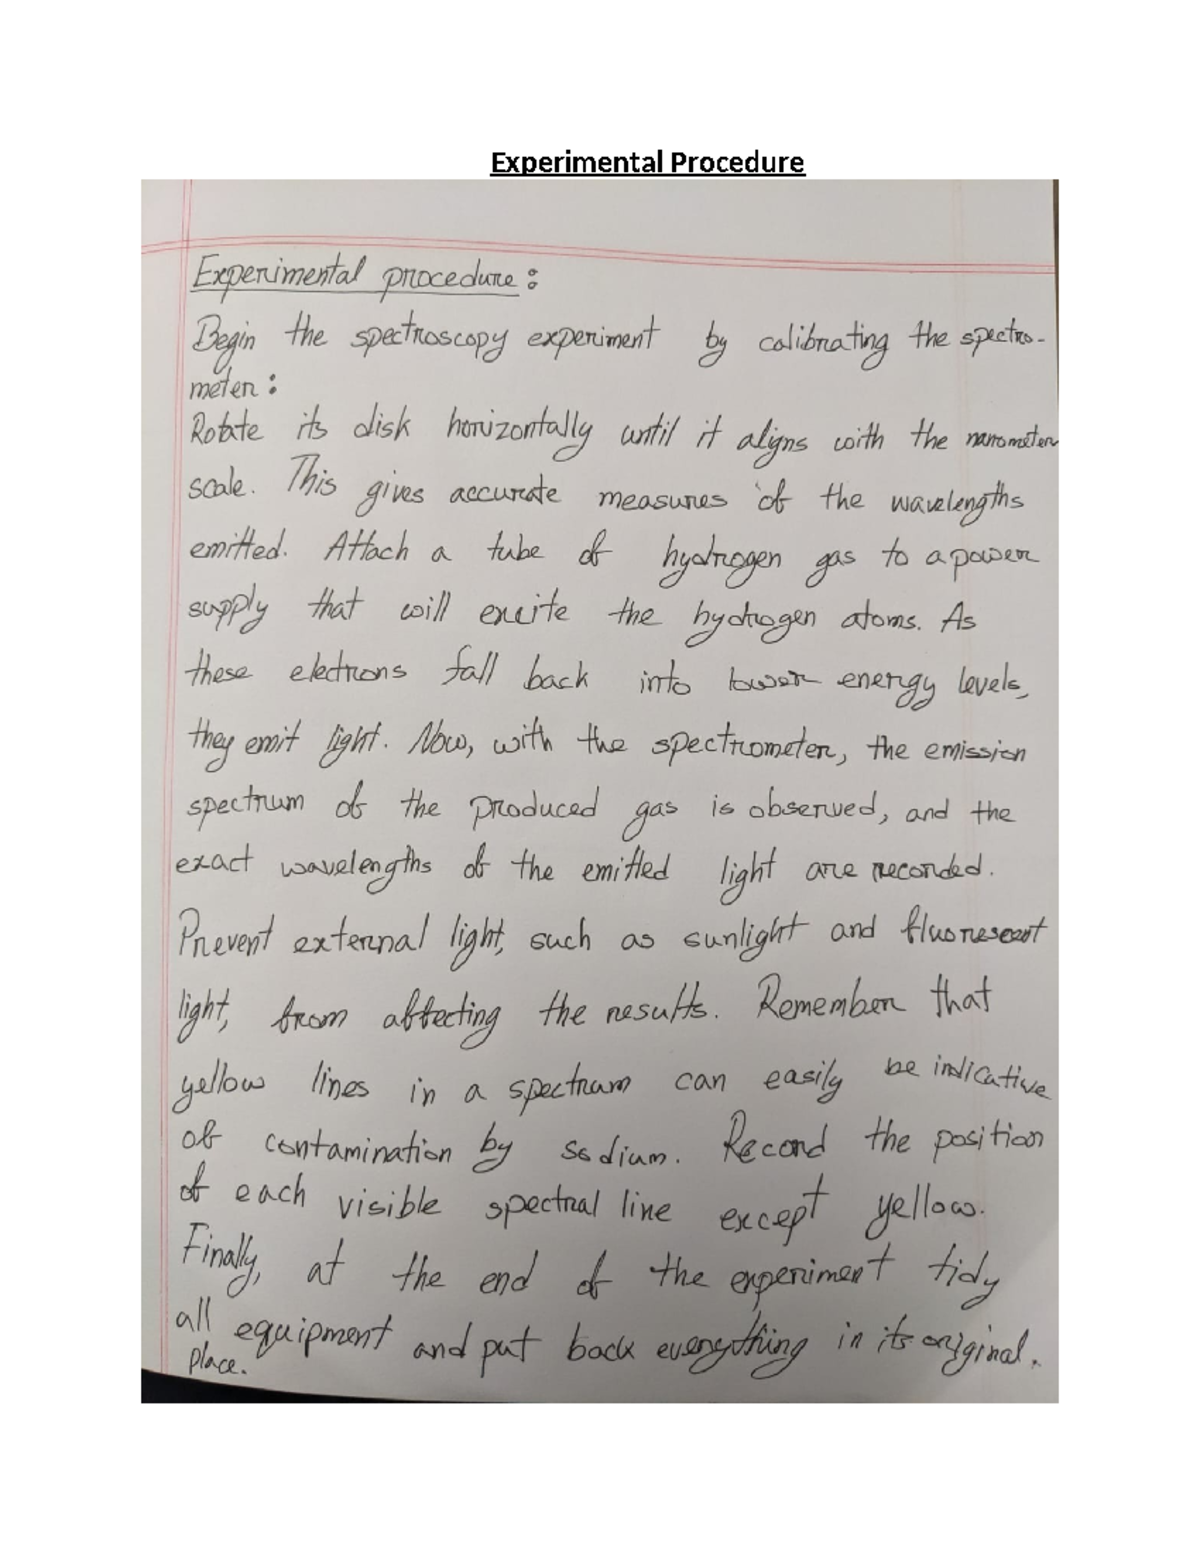 Experimental Procedure
Experimental procedure:
Begin the spectroscopy experiment by calibrating the spectro-
meter:
Rotate its disk horizontally until it aligns with the nanometer
scale. This gives accurate measures of the wavelengths
emitted. Attach a tube of hydrogen gas to a power
supply that will excite the hydrogen atoms. As
these electrons fall back into lower energy levels,
they emit light. Now, with the spectrometer, the emission
spectrum of the produced gas is observed, and the
exact wavelengths of the emitted light are recorded.
Prevent external light, such as sunlight and fluorescent
light, from affecting the results. Remember that
yellow lines in a spectrum can easily be indicative
of contamination by sodium. Record the position
of each visible spectral line except yellow.
Finally, at the end of the experiment tidy
all equipment and put back everything in its original.
place.